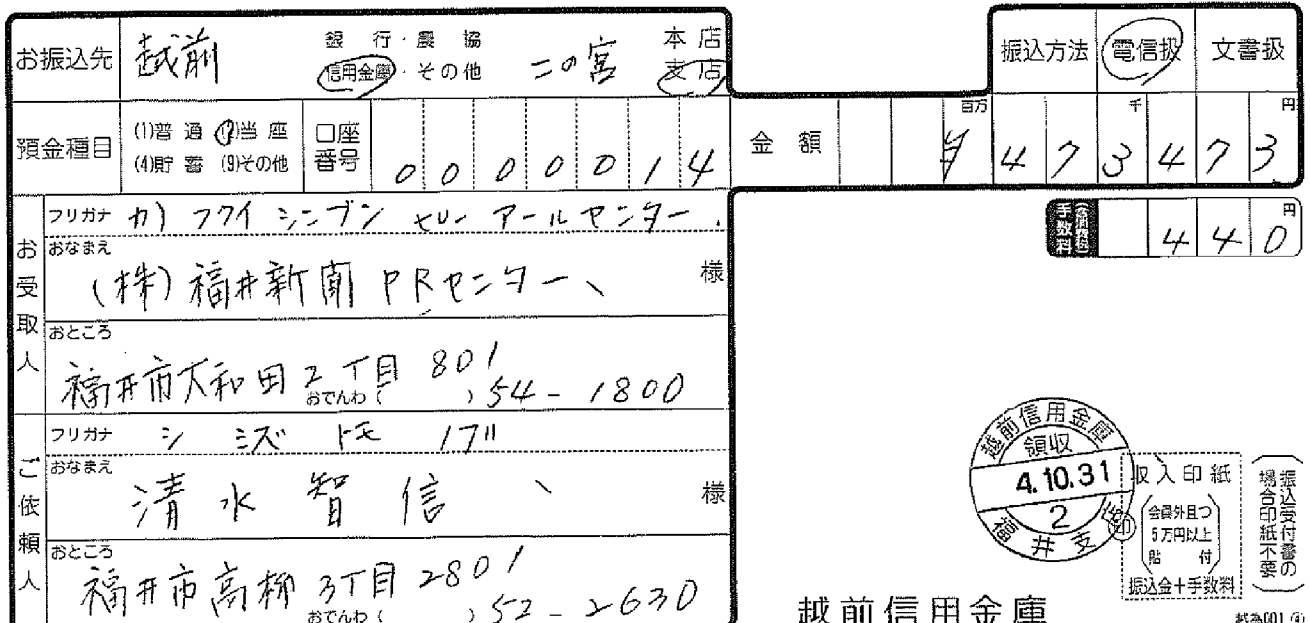 お振込先 越前 銀行・農協 信用金庫・その他 二の宮 本店 支店
振込方法 電信扱 文書扱
預金種目 (1)普通 (2)当座 (4)貯蓄 (9)その他 口座番号 0000014
金額 百万 千 円 ¥473473
手数料 円 440
お受取人
フリガナ カ) フクイ シンブン ピー アールセンター
おなまえ (株)福井新聞 PRセンター 様
おところ 福井市大和田2丁目801
おでんわ ( ) 54-1800
ご依頼人
フリガナ シミズ トモノブ
おなまえ 清水智信 様
おところ 福井市高柳3丁目2801
おでんわ ( ) 52-2630
越前信用金庫
領収
4.10.31
2
福井支店
収入印紙
会員外且つ
5万円以上
貼付
印
振込金+手数料
振込受付書の
場合印紙不要
越前信用金庫